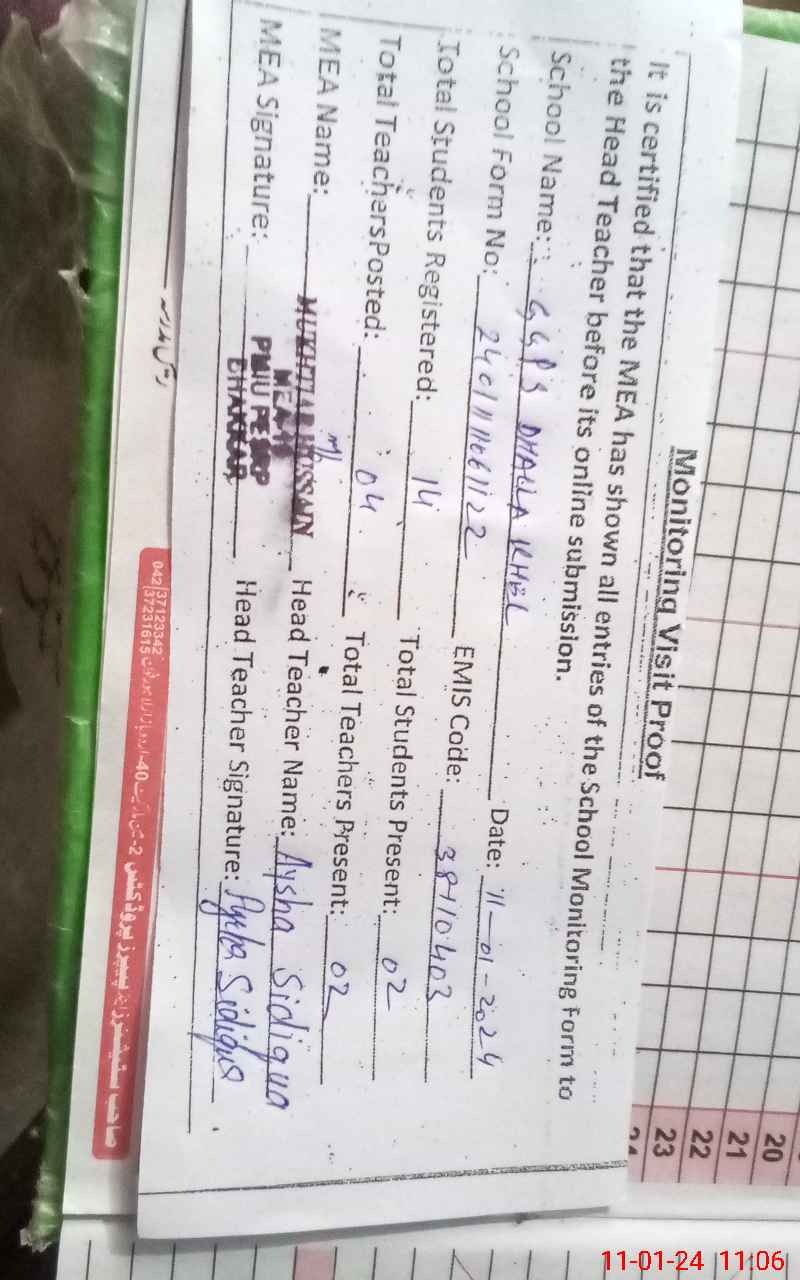 Monitoring Visit Proof
It is certified that the MEA has shown all entries of the School Monitoring Form to
the Head Teacher before its online submission.
School Name: GGPS DHALLA KHBL Date: 11-01-2024
School Form No: EMIS Code: 38110403
Total Students Registered: 14 Total Students Present: 02
Total Teachers Posted: 04 Total Teachers Present: 02
MEA Name: MUKHTIAR HUSSAIN Head Teacher Name: Aysha Sidiqua
MEA Signature: PMIU PESRP Head Teacher Signature: Aysha Sidiqua
BHAKKAR
042 37123342
37231615
20
21
22
23
24
11-01-24 11:06